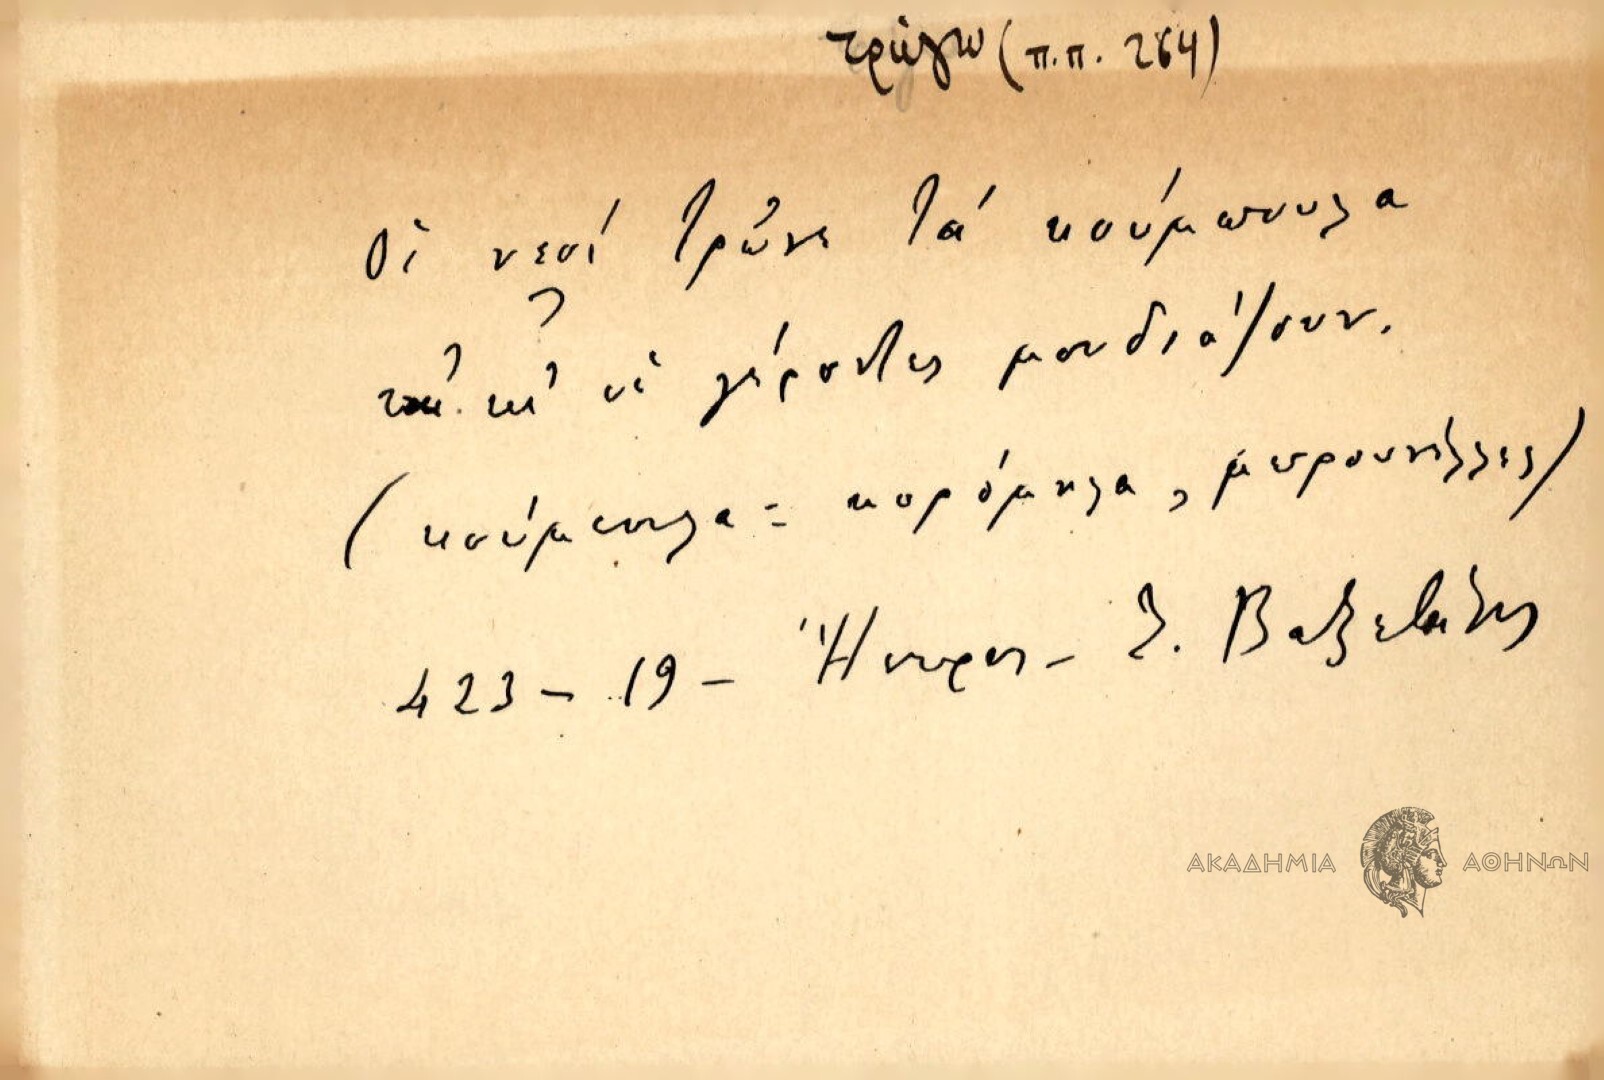 τρώγω (π.π. 264)
Οἱ νεοί τρῶνε τά κούμπουλα
κι' οἱ γέροντες μουδιάζουν.
(κούμπουλα = κορόμηλα, μπουρνέλλες)
423 - 19 - Ἤπειρος - Σ. Βαζετάκης
ΑΚΑΔΗΜΙΑ ΑΘΗΝΩΝ